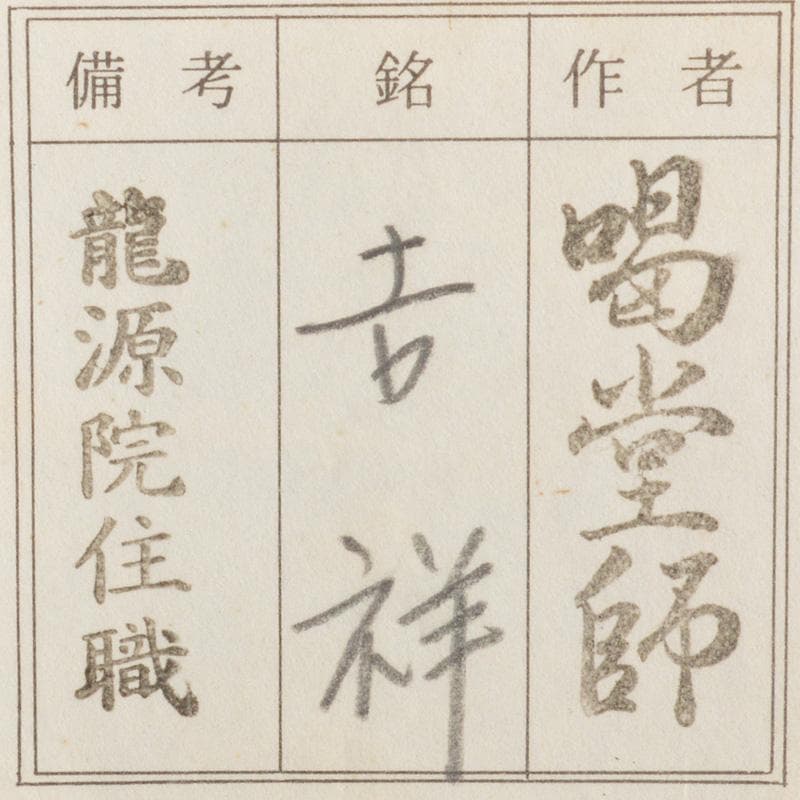 作者
喝堂師
銘
吉祥
備考
龍源院住職